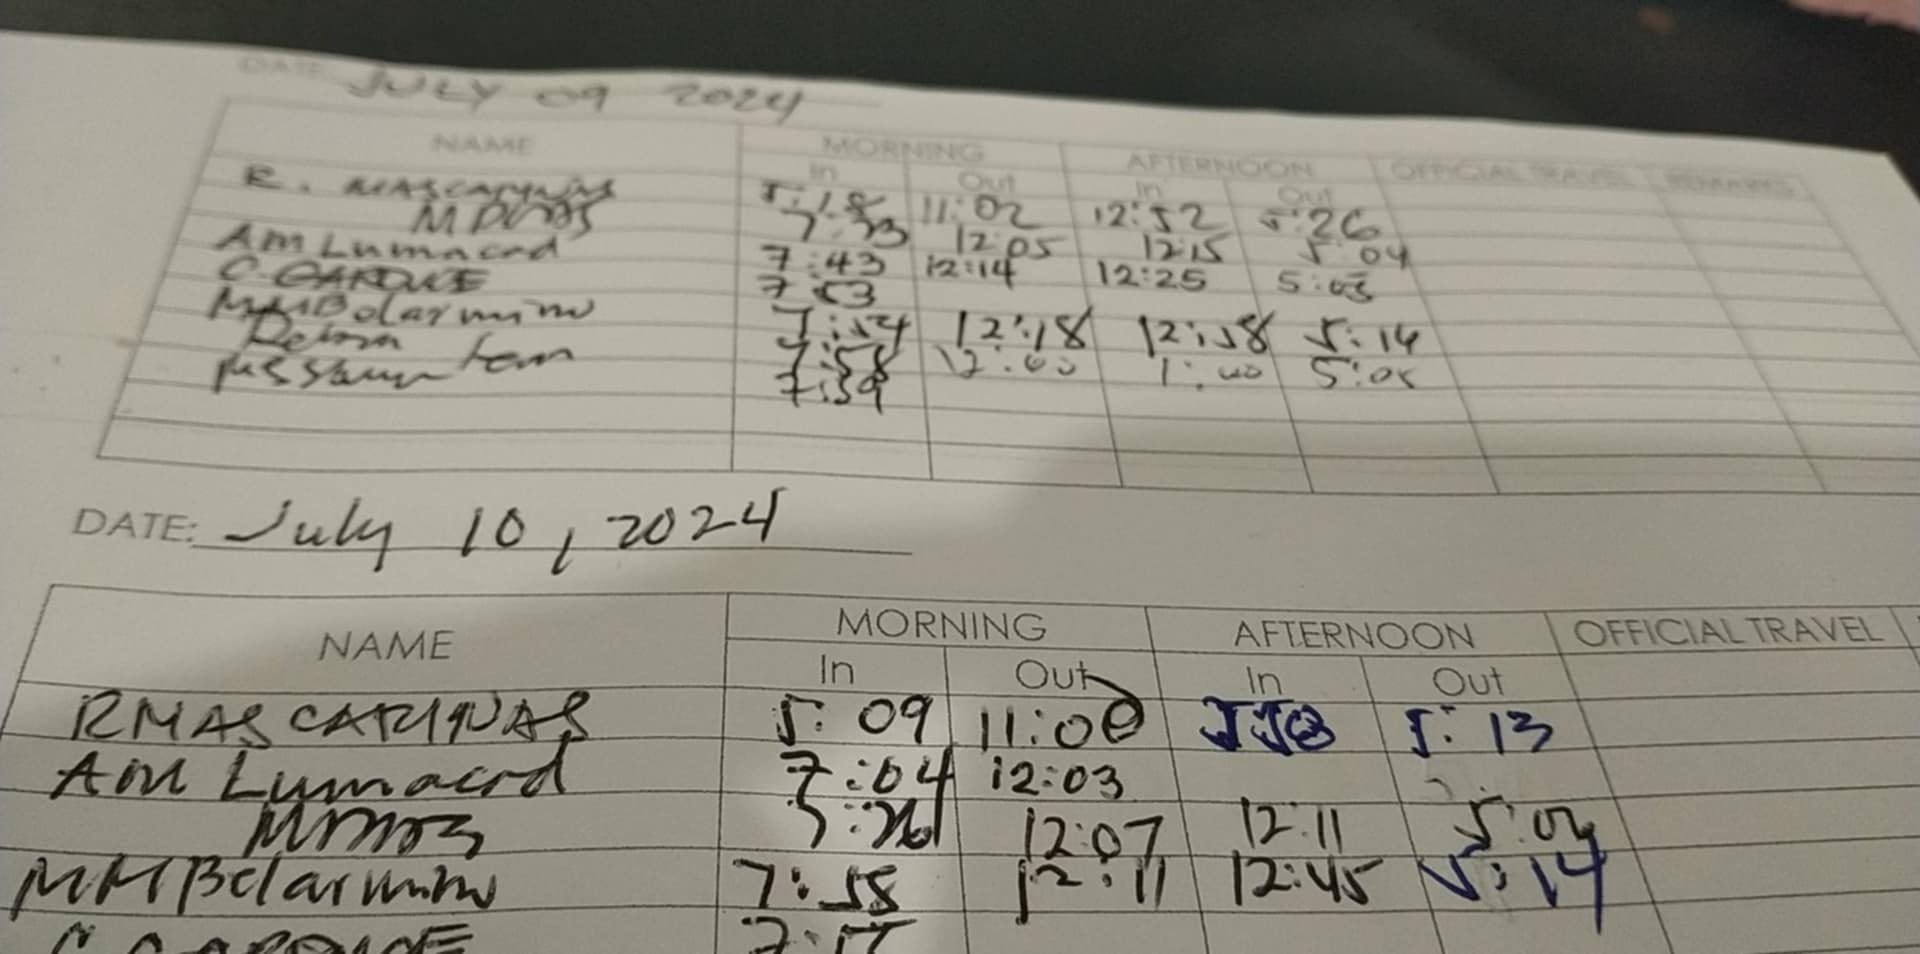 DATE: JULY 09 2024
NAME MORNING AFTERNOON OFFICIAL TRAVEL REMARKS
In Out In Out
R. MASCARINAS 5:18 11:02 12:52 5:26
7:33 12:05 12:15 5:04
AM Lumacad 7:43 12:14 12:25 5:03
C. GARDUCE 7:53
MMBelarmino 7:54 12:18 12:58 5:14
7:58 12:00 1:00 5:05
7:59
DATE: July 10, 2024
NAME MORNING AFTERNOON OFFICIAL TRAVEL
In Out In Out
RMASCARINAS 5:09 11:00 5:13
AM Lumacad 7:04 12:03
12:07 12:11 5:02
MMBelarmino 7:58 12:11 12:45 5:14